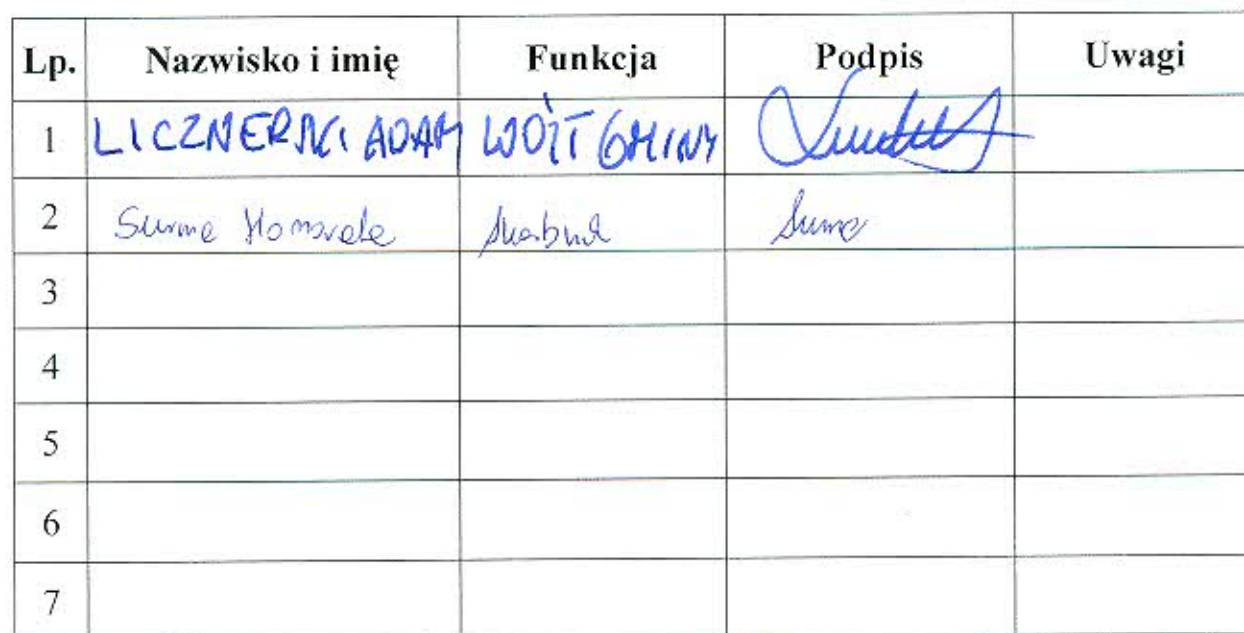 Lp. Nazwisko i imię Funkcja Podpis Uwagi
1 LICZNERSKI ADAM WÓJT GMINY
2 Surma Skarbnik
3
4
5
6
7